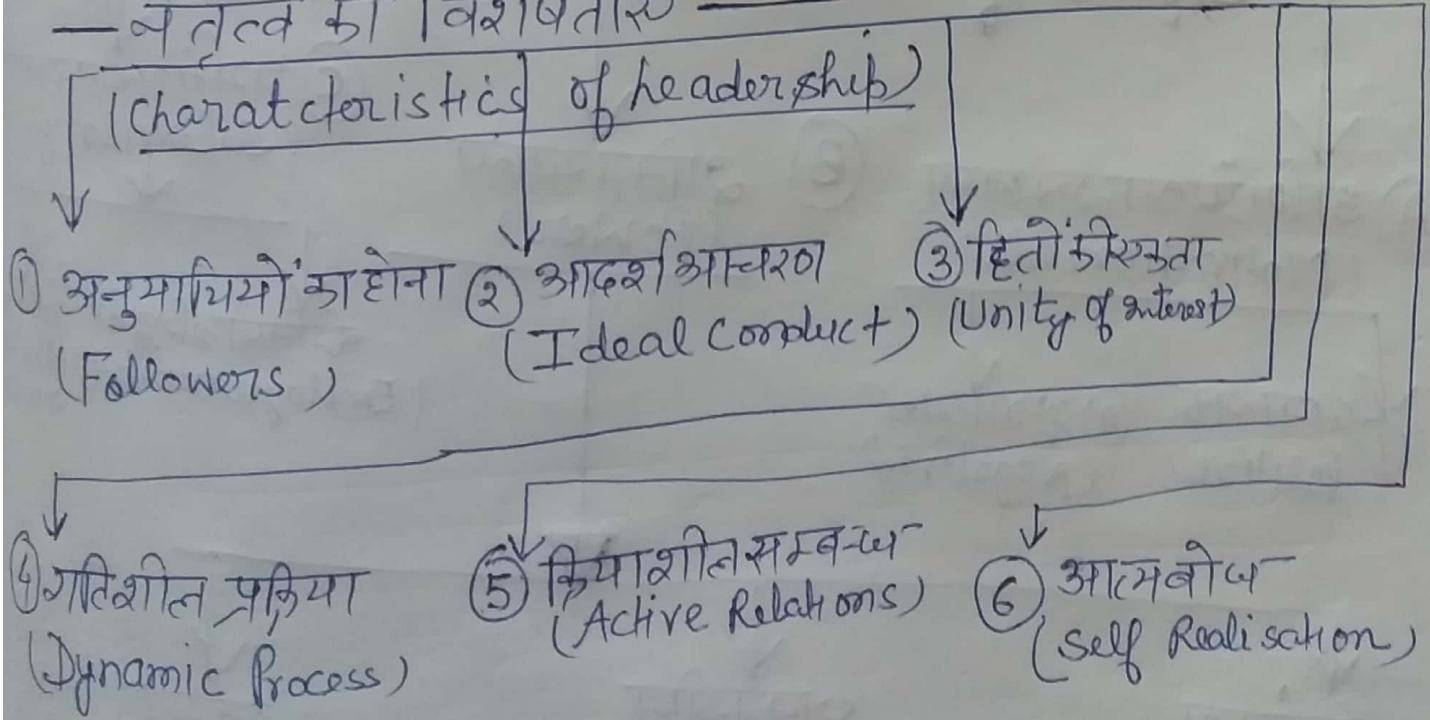 नेतृत्व की विशेषताएं
(Charatcteristics of Leadership)
① अनुयायियों का होना
(Followers)
② आदर्श आचरण
(Ideal Conduct)
③ हितों की एकता
(Unity of interest)
④ गतिशील प्रक्रिया
(Dynamic Process)
⑤ क्रियाशील सम्बन्ध
(Active Relations)
⑥ आत्मबोध
(Self Realisation)